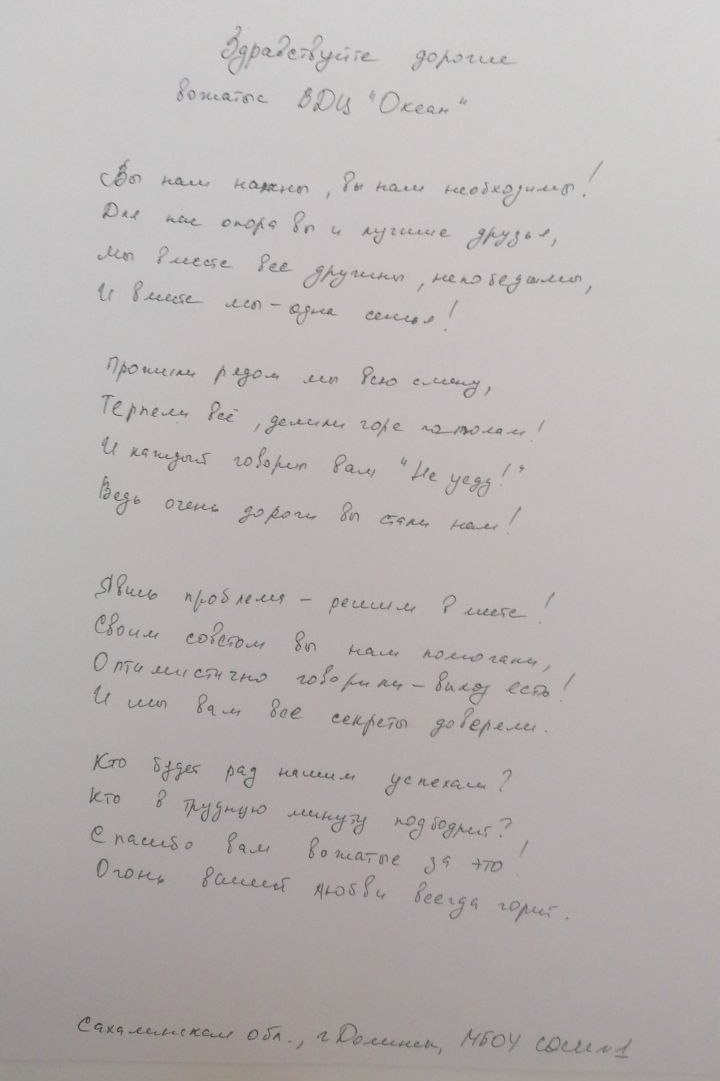 Здравствуйте дорогие
вожатые ВДЦ "Океан"
Вы нам нажны, вы нам необходимы!
Для нас опора вы и лучшие друзья,
Мы вместе все дружины, непобедимы,
И вместе мы - одна семья!
Прожили рядом мы всю смену,
Терпели всё, делили горе пополам!
И каждый говорит вам "Не уеду!"
Ведь очень дороги вы стали нам!
Явись проблема - решим вместе!
Своим советом вы нам помогали,
Оптимистично говорили - выход есть!
И мы вам все секреты доверели.
Кто будет рад нашим успехам?
Кто в трудную минуту подбодрит?
Спасибо вам вожатые за это!
Огонь вашей любви всегда горит.
Сахалинская обл., г. Долинск, МБОУ СОШ №1